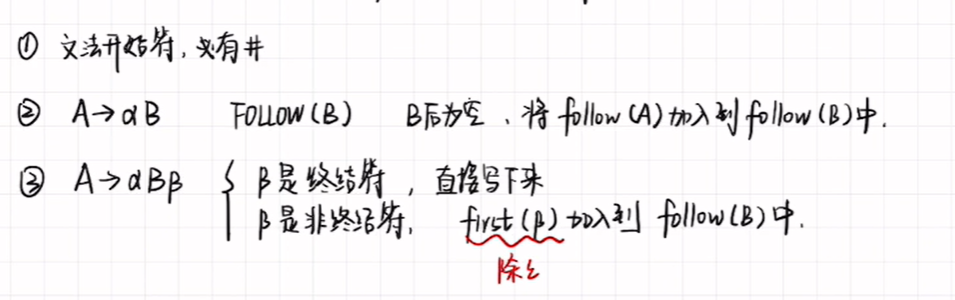 ① 文法开始符，必有井
② A→αB FOLLOW(B) B后为空，将follow(A)加入到follow(B)中.
③ A→αBβ { β是终结符，直接写下来
β是非终结符， first(β)加入到 follow(B)中.
除ε